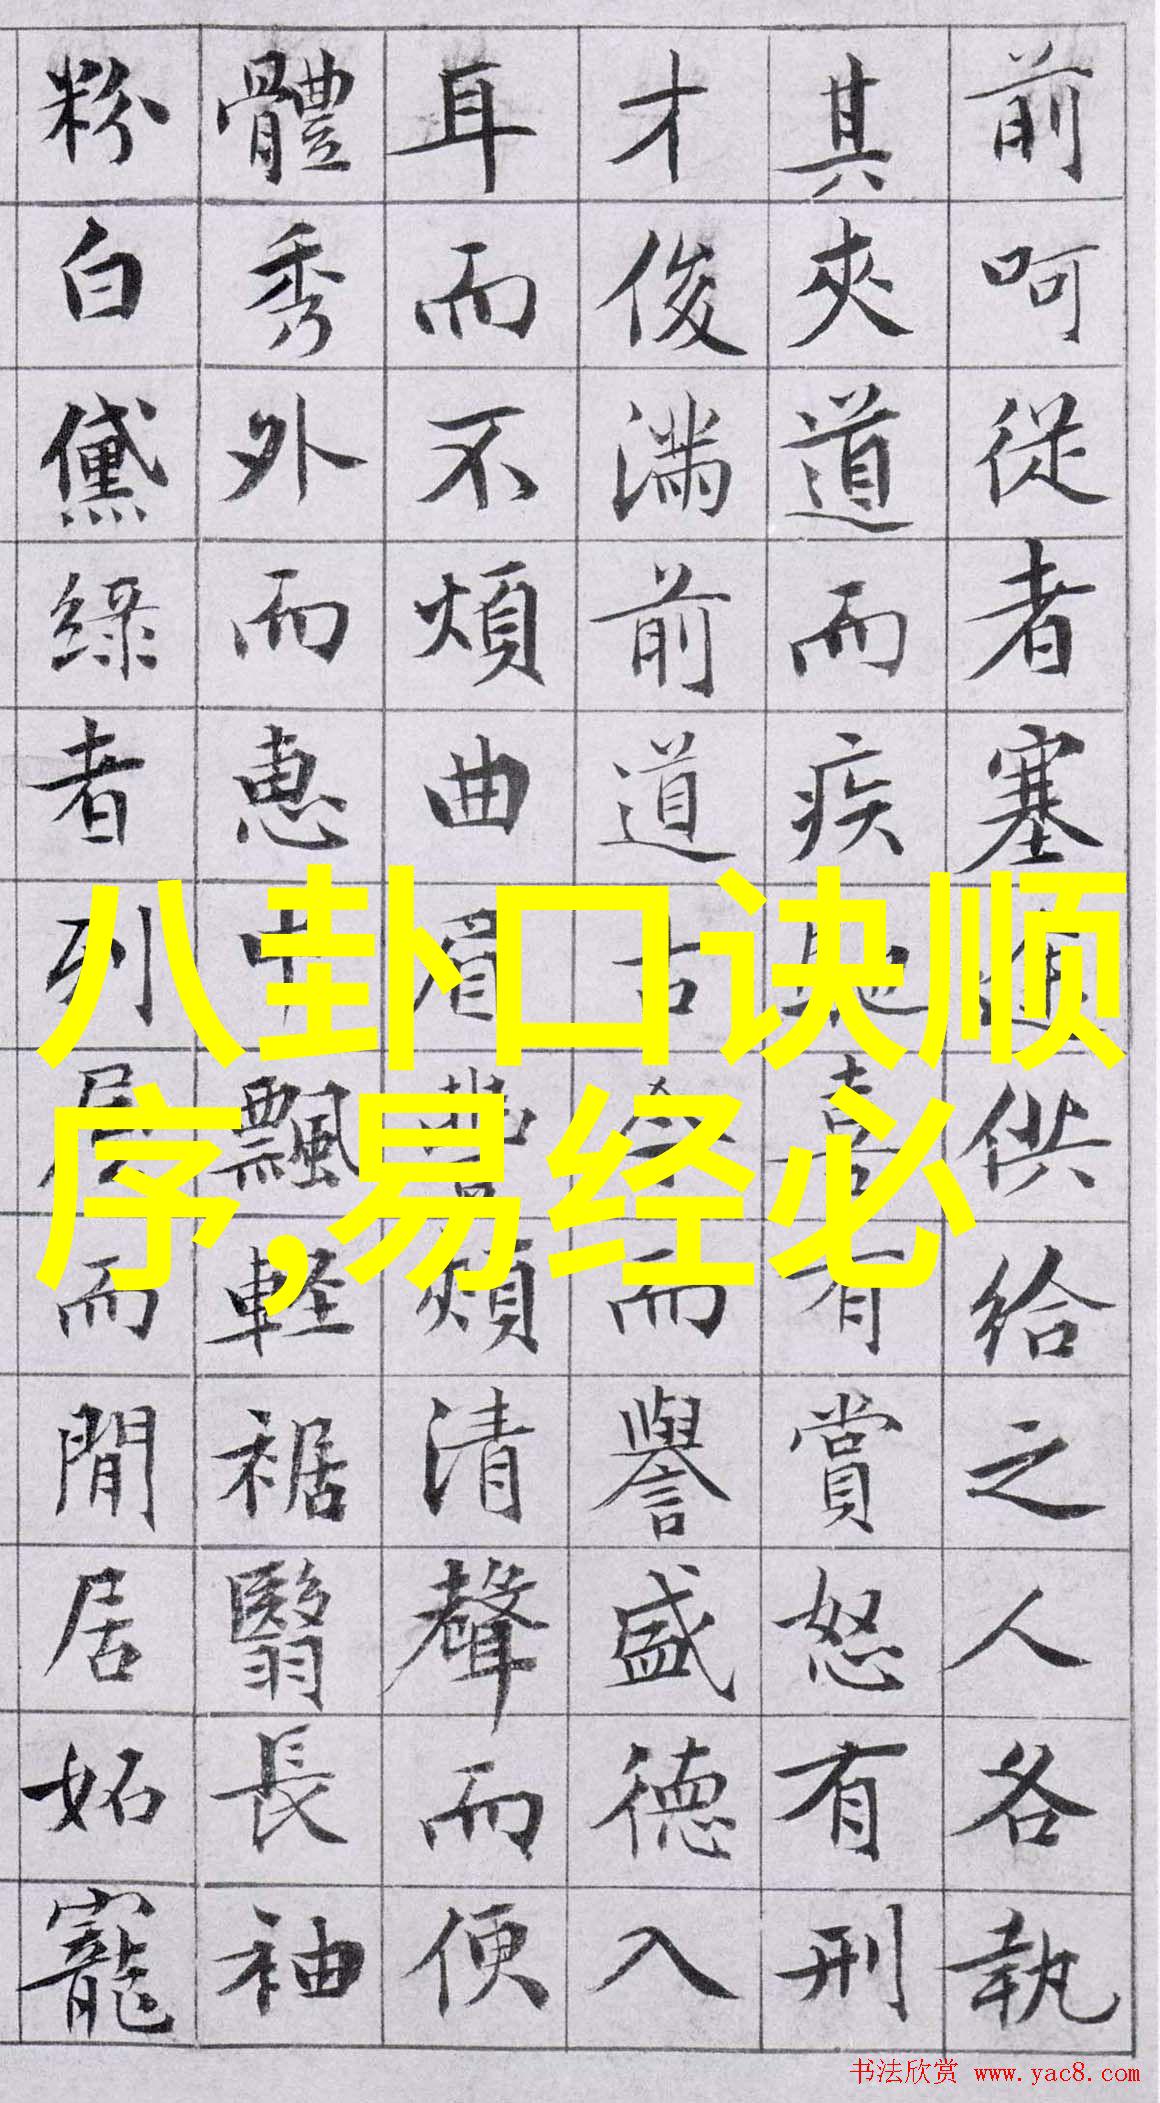 前呵從者塞途供給之人各執
其夾道而疾馳喜有賞怒有刑
才俊満前道古今而譽盛徳入
耳而不煩曲眉豊頰清聲而便
體秀外而惠中飄軽裾翳長袖
粉白黛綠者列屋而閒居妬寵
八卦口诀顺
序,易经必
书法欣赏 www.yac8.com